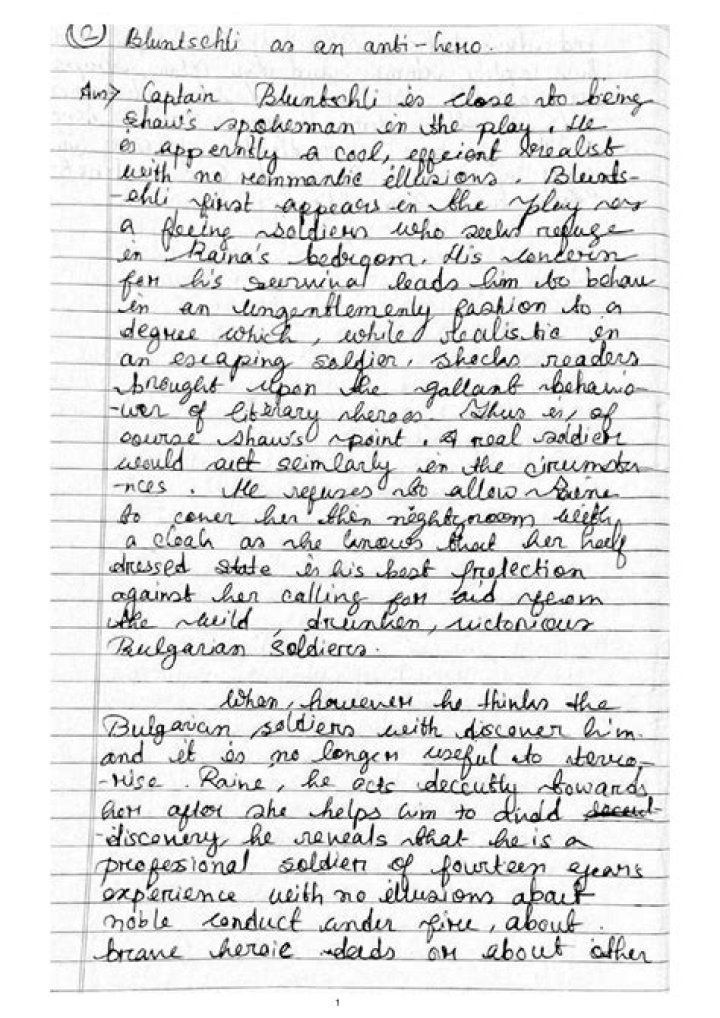 (2) Bluntschli as an anti-hero.
Ans> Captain Bluntschli is close to being
Shaw's spokesman in the play. He
is apperntly a cool, efficient realist
with no rommantic illusions. Blunts-
-chli first appears in the play as
a fleeing soldiers who seeks refuge
in Raina's bedroom. His concern
for his survival leads him to behave
in an ungentlemenly fashion to a
degree which, while realistic in
an escaping soldier, shocks readers
brought upon the gallant behavio-
-ur of literary heroes. Thus is, of
course Shaw's point. A real soldier
would act seimlarly in the circumsta-
-nces. He refuses to allow Raina
to cover her thin nightgown with
a cloak as he knows that her half
dressed state is his best protection
against her calling for aid from
the wild, drunken, victorious
Bulgarian soldiers.
When, however he thinks the
Bulgarian soldiers with discover him
and it is no longer useful to terro-
-rise. Raine, he acts decently towards
her after she helps him to
-discovery, he reveals that he is a
professional soldier of fourteen years
experience with no illusions about
noble conduct under fire, about
brave heroic deads or about other
1